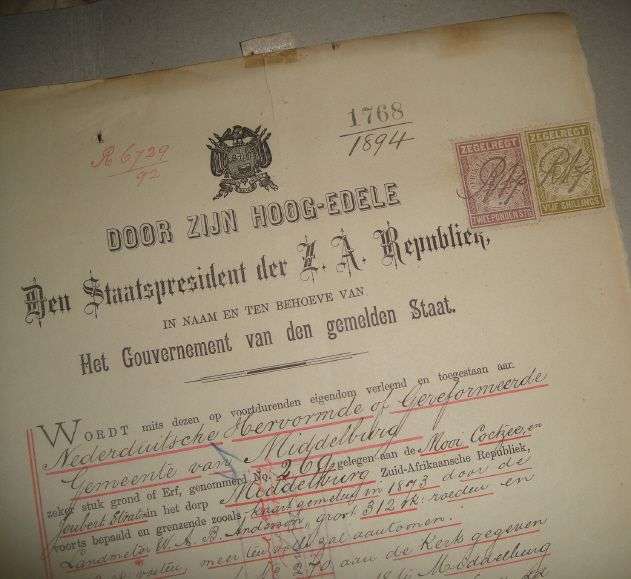 1768
R 6729
92
1894
ZEGELREGT
ZEGELREGT
TWEE PONDEN STG
VIJF SHILLINGS
DOOR ZIJN HOOG-EDELE
Den Staatspresident der Z. A. Republiek,
IN NAAM EN TEN BEHOEVE VAN
Het Gouvernement van den gemelden Staat.
WORDT mits dezen op voortdurenden eigendom verleend en toegestaan aan
Nederduitsche Hervormde of Gereformeerde
Gemeente van Middelburg
zeker stuk grond of Erf, genommerd No. 269 gelegen aan de Mooi Coetzee en
Joubert Straten in het dorp Middelburg Zuid-Afrikaansche Republiek,
voorts bepaald en grenzende zooals kaart gemeten in 1873 door de
Landmeter W. A. B. Anderson, groot 312 vk: roeden en
voeten meer ten volle zal aantoonen.
270 aan de Kerk gegeven
Middelburg